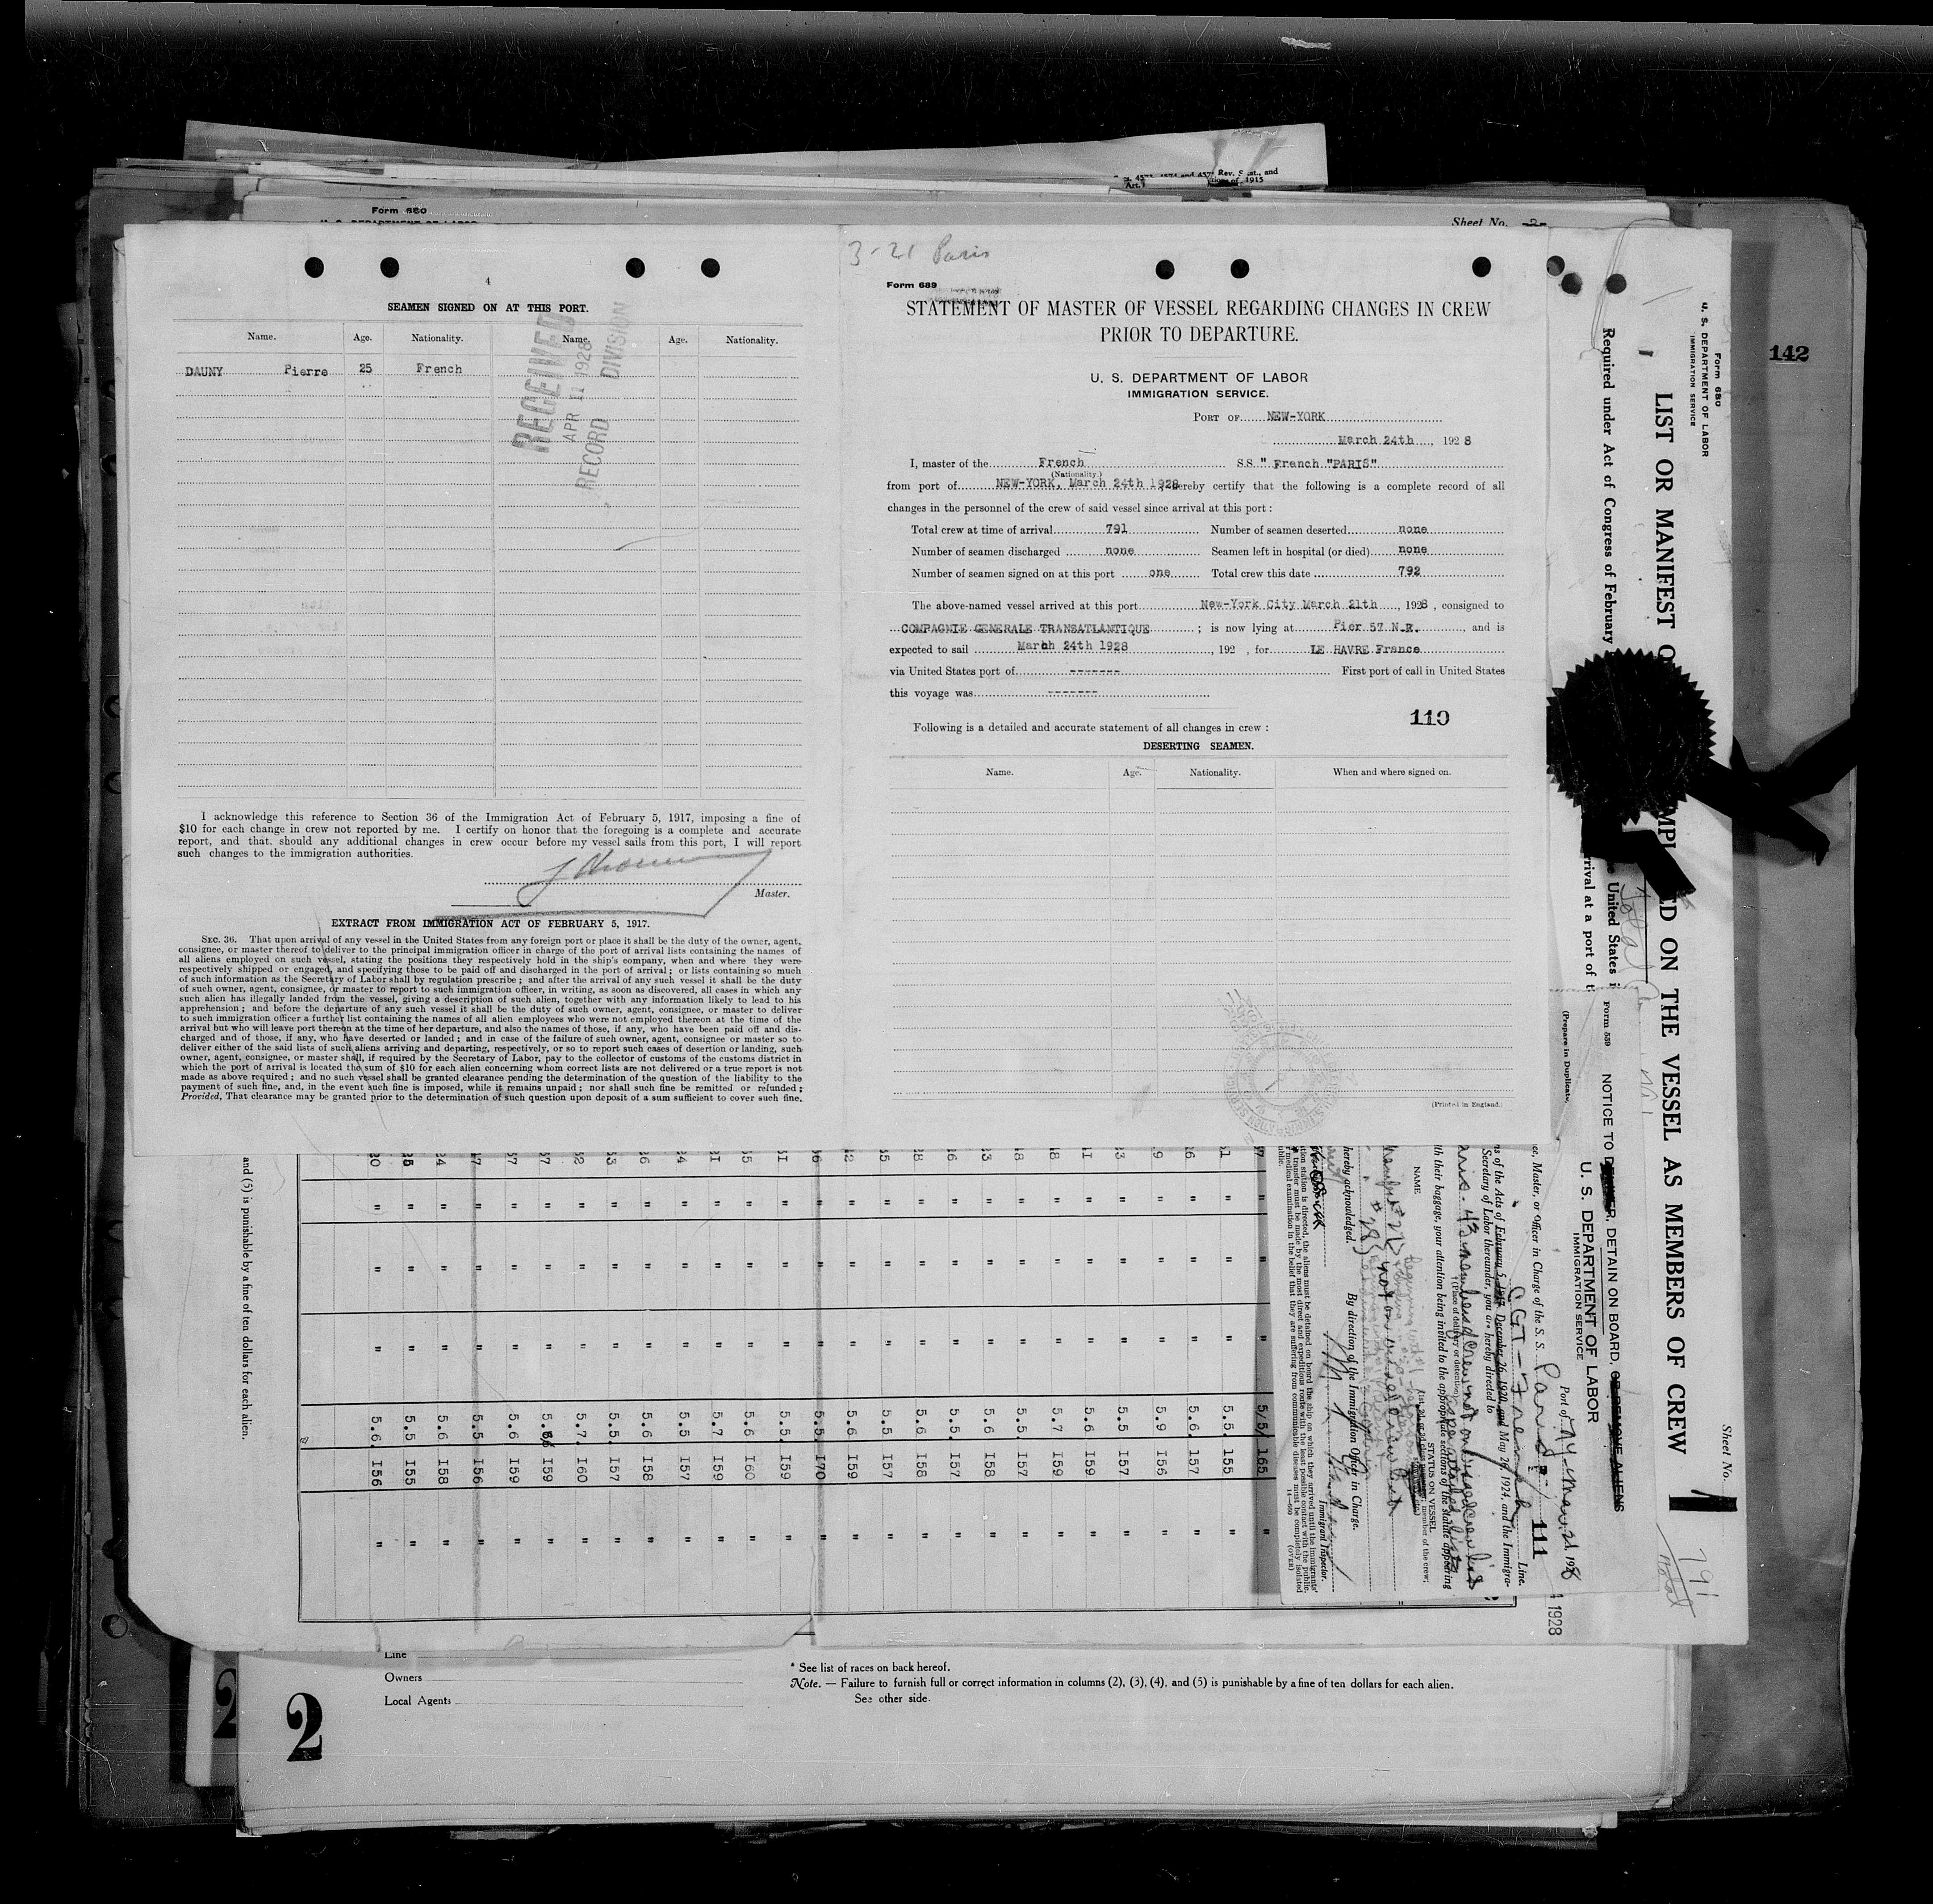 4573, 4574 and 4575 Rev. Stat., and
Form 680
Sheet No. -2-
142
4
SEAMEN SIGNED ON AT THIS PORT.
Name. Age. Nationality. Name. Age. Nationality.
DAUNY Pierre 25 French
RECEIVED
APR 11 1928
RECORD DIVISION
I acknowledge this reference to Section 36 of the Immigration Act of February 5, 1917, imposing a fine of
$10 for each change in crew not reported by me. I certify on honor that the foregoing is a complete and accurate
report, and that. should any additional changes in crew occur before my vessel sails from this port, I will report
such changes to the immigration authorities.
Master.
EXTRACT FROM IMMIGRATION ACT OF FEBRUARY 5, 1917.
SEC. 36. That upon arrival of any vessel in the United States from any foreign port or place it shall be the duty of the owner, agent,
consignee, or master thereof to deliver to the principal immigration officer in charge of the port of arrival lists containing the names of
all aliens employed on such vessel, stating the positions they respectively hold in the ship's company, when and where they were
respectively shipped or engaged, and specifying those to be paid off and discharged in the port of arrival; or lists containing so much
of such information as the Secretary of Labor shall by regulation prescribe; and after the arrival of any such vessel it shall be the duty
of such owner, agent, consignee, or master to report to such immigration officer, in writing, as soon as discovered, all cases in which any
such alien has illegally landed from the vessel, giving a description of such alien, together with any information likely to lead to his
apprehension; and before the departure of any such vessel it shall be the duty of such owner, agent, consignee, or master to deliver
to such immigration officer a further list containing the names of all alien employees who were not employed thereon at the time of the
arrival but who will leave port thereon at the time of her departure, and also the names of those, if any, who have been paid off and dis-
charged and of those, if any, who have deserted or landed; and in case of the failure of such owner, agent, consignee or master so to
deliver either of the said lists of such aliens arriving and departing, respectively, or so to report such cases of desertion or landing, such
owner, agent, consignee, or master shall, if required by the Secretary of Labor, pay to the collector of customs of the customs district in
which the port of arrival is located the sum of $10 for each alien concerning whom correct lists are not delivered or a true report is not
made as above required; and no such vessel shall be granted clearance pending the determination of the question of the liability to the
payment of such fine, and, in the event such fine is imposed, while it remains unpaid; nor shall such fine be remitted or refunded;
Provided, That clearance may be granted prior to the determination of such question upon deposit of a sum sufficient to cover such fine.
3-21 Paris
Form 689
STATEMENT OF MASTER OF VESSEL REGARDING CHANGES IN CREW
PRIOR TO DEPARTURE.
U. S. DEPARTMENT OF LABOR
IMMIGRATION SERVICE.
PORT OF NEW-YORK
March 24th, 1928
I, master of the French S.S. " French "PARIS"
(Nationality.)
from port of NEW-YORK, March 24th 1928, hereby certify that the following is a complete record of all
changes in the personnel of the crew of said vessel since arrival at this port:
Total crew at time of arrival 791 Number of seamen deserted none
Number of seamen discharged none Seamen left in hospital (or died) none
Number of seamen signed on at this port one Total crew this date 792
The above-named vessel arrived at this port New-York City March 21th, 1928, consigned to
COMPAGNIE GENERALE TRANSATLANTIQUE; is now lying at Pier 57 N.R., and is
expected to sail March 24th 1928, 192 , for LE HAVRE France
via United States port of ------- First port of call in United States
this voyage was -------
110
Following is a detailed and accurate statement of all changes in crew:
DESERTING SEAMEN.
Name. Age. Nationality. When and where signed on.
(Printed in England.)
Form 680
U. S. DEPARTMENT OF LABOR
IMMIGRATION SERVICE
Sheet No. 1
LIST OR MANIFEST O MPL ED ON THE VESSEL AS MEMBERS OF CREW
Required under Act of Congress of February United States
rrival at a port of
791
Form 559
NOTICE TO DELIVER, DETAIN ON BOARD, OR REMOVE ALIENS
(Prepare in Duplicate.
U. S. DEPARTMENT OF LABOR
IMMIGRATION SERVICE
Port of N.Y. Mar. 21, 1928
111
Master, or Officer in Charge of the S. S. Paris
CGT - French Line.
of the Acts of February 5, 1917, December 26, 1920, and May 26, 1924, and the Immigra-
Secretary of Labor thereunder, you are hereby directed to
(Place of delivery or detention)
th their baggage, your attention being invited to the appropriate sections of the statute appearing
NAME STATUS ON VESSEL
hereby acknowledged. By direction of the Immigration Officer in Charge.
Immigrant Inspector.
tion station is directed, the aliens must be detained on board the ship on which they arrived until the immigrants'
transfer must be made by the most direct and expeditious route with the least possible contact with the public.
medical examination in the belief that they are suffering from communicable diseases must be completely isolated
(OVER)
1928
5/5/ 165
5.5 155
5.6. 157
5.9 156
5.5 157
5.6 159
5.7 159
5.5 157
5.6 158
5.5. 157
5.6 158
5.5 157
5.6 159
5.5. 170
5.I 159
5.6 160
5.7 159
5.5 167
5.6 158
5.5. 157
5.7. 160
159
5.6 159
5.5 156
5.6 158
5.5 155
5.6. 156
and (5) is punishable by a fine of ten dollars for each alien.
2
Line
Owners
Local Agents
* See list of races on back hereof.
Note. — Failure to furnish full or correct information in columns (2), (3), (4), and (5) is punishable by a fine of ten dollars for each alien.
See other side.
2